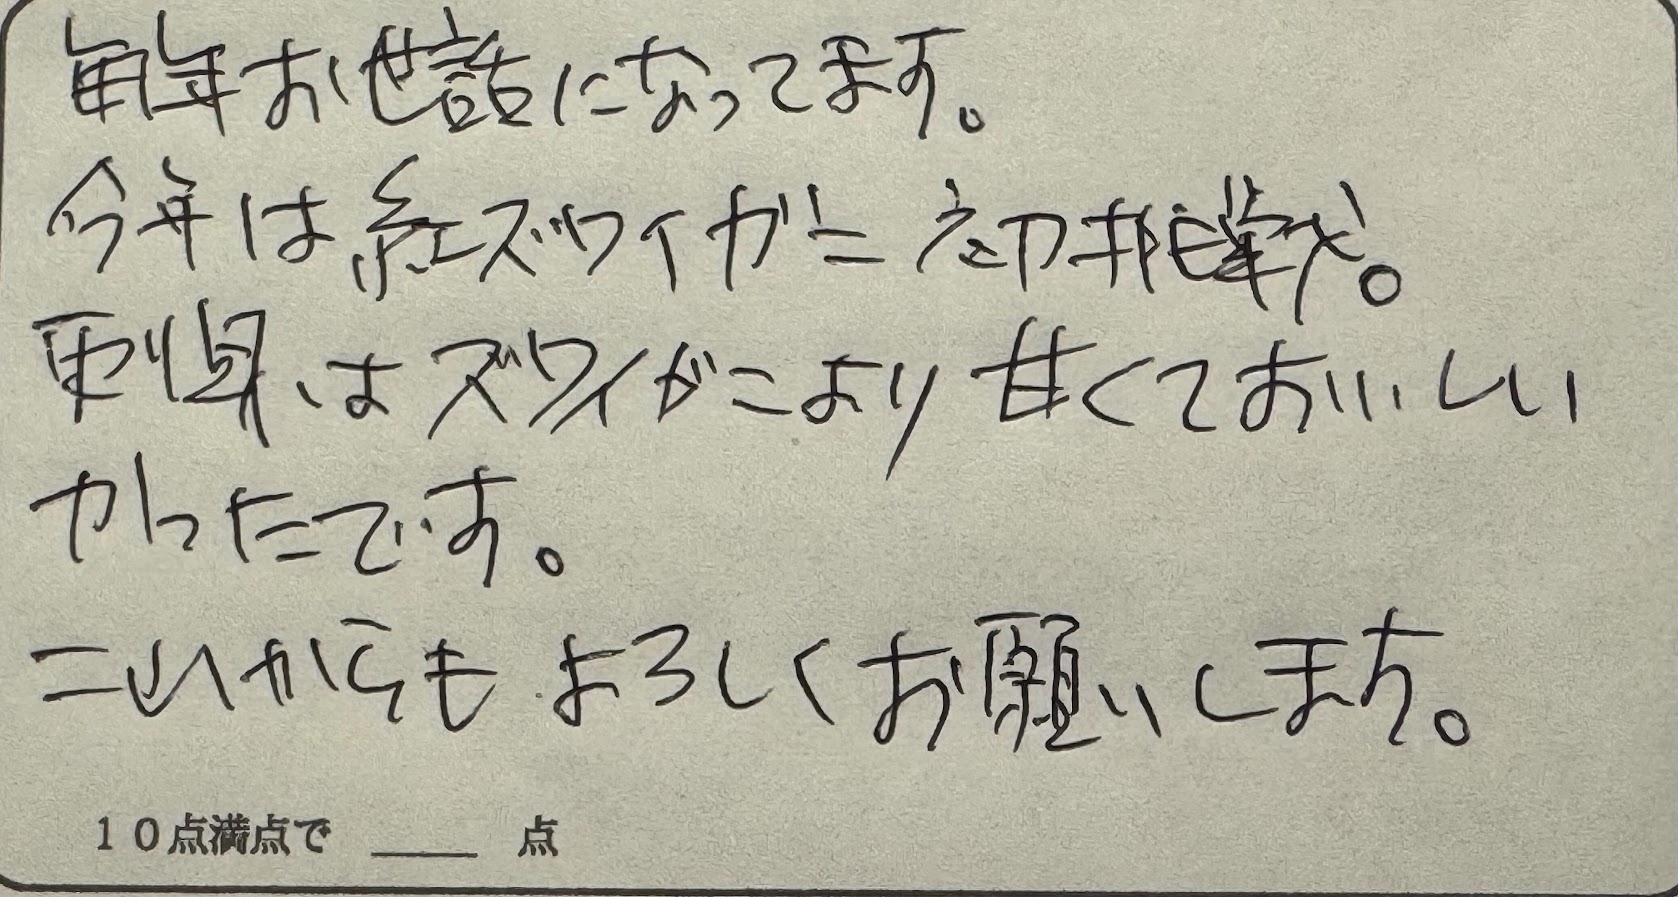 毎年お世話になってます。
今年は紅ズワイガニ初挑戦。
刺身はズワイがによりり甘くておいしい
かったです。
これからもよろしくお願いします。
10点満点で ____ 点